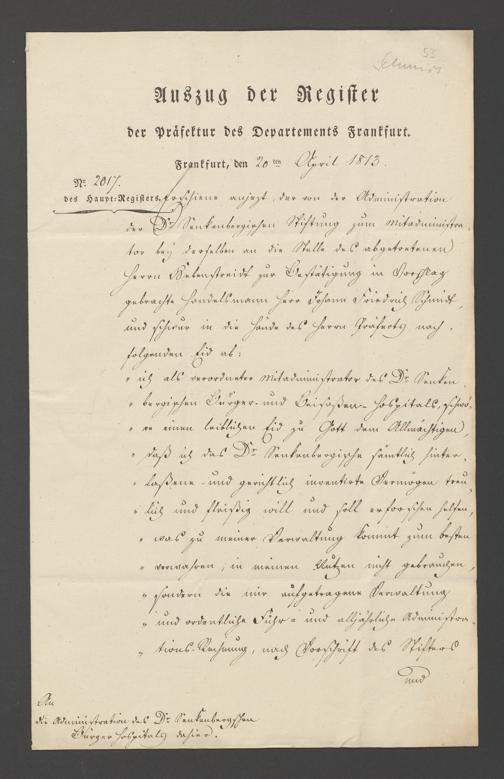 53
Schmidt
Auszug der Register
der Präfektur des Departements Frankfurt.
Frankfurt, den 20ten April 1813.
Nr. 2017.
des Haupt-Registers. Erschiene anjezt, der von der Administration
der Dr. Senkenbergischen Stiftung zum Mitadministra-
tor bey derselben an die Stelle des abgetretenen
Herrn Belenstreidt zur Bestätigung in Vorschlag
gebrachte Handelsmann Herr Johann Friedrich Schmidt,
und schwur in die Hände des Herrn Präfects nach-
folgenden Eid ab:
" ich als verordneter Mitadministrator des Dr. Senken-
" bergischen Bürger- und Beisaßen-Hospitals, schwö-
" re einen leiblichen Eid zu Gott dem Allmächtigen,
" daß ich das Dr. Senkenbergische sämtlich hinter-
" laßene- und gerichtlich inventirte Vermögen treu-
" lich und fleißig will und soll erforschen helfen,
" was zu meiner Verwaltung kommt zum besten
" verwahren, in meinen Nutzen nicht gebrauchen,
" sondern die mir aufgetragene Verwaltung
" und ordentliche Führ- und alljährliche Administra-
" tions-Rechnung, nach Vorschrift des Stifters
und
An
die Administration des Dr. Senkenbergschen
Bürgerhospitals dahier.